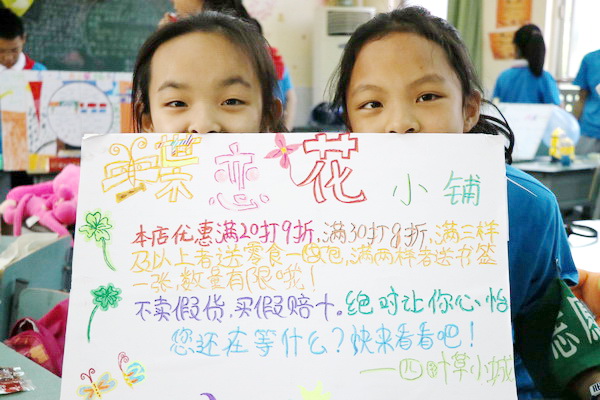 蝶恋花小铺
本店优惠满20打9折,满30打8折,满三样
及以上者送零食一包,满两样者送书签
一张,数量有限哦!
不卖假货,买假赔十。绝对让你心怡
您还在等什么?快来看看吧!
——四叶草小城
志愿